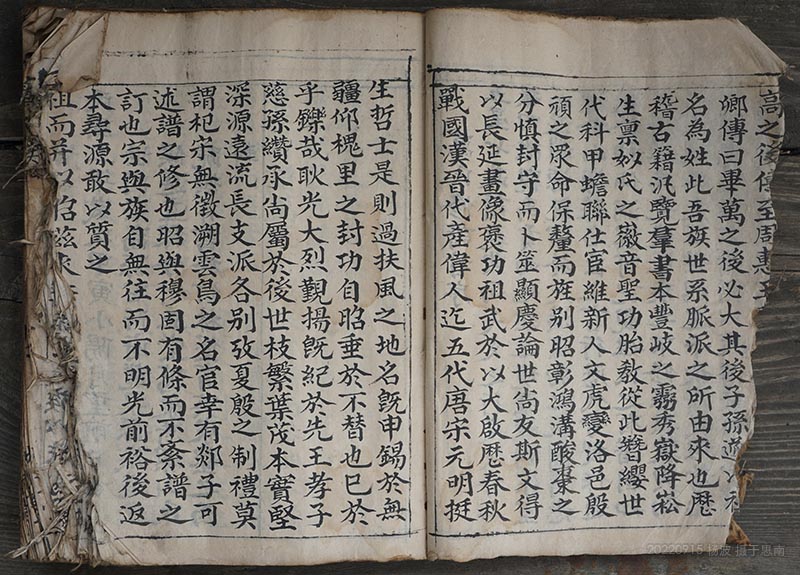 高之後傳至周惠王
卿傳曰畢萬之後必大其後子孫遂以
名為姓此吾族世系脈派之所由來也歷
稽古籍汎覽羣書本豐岐之靄秀嶽降崧
生稟姒氏之徽音聖功胎教從此簪纓世
代科甲蟾聯仕宦維新人文虎變洛邑殷
頑之眾命保釐而旌別昭彰鴻溝酸棗之
分慎封守而卜筮顯慶論世尚友斯文得
以長延畫像褒功祖武於以大啟歷春秋
戰國漢晉代產偉人迄五代唐宋元明挺
生哲士是則過扶風之地名既申錫於無
疆仰槐里之封功自昭垂於不替也已於
乎鑠哉耿光大烈覲揚既紀於先王孝子
慈孫纘承尚屬於後世枝繁葉茂本實堅
深源遠流長支派各別攷夏殷之制禮莫
謂杞宋無徵溯雲鳥之名官幸有郯子可
述譜之修也昭與穆固有條而不紊譜之
訂也宗與族自無往而不明光前裕後返
本尋源敢以質之
祖而并以
20220915 杨波 摄于思南